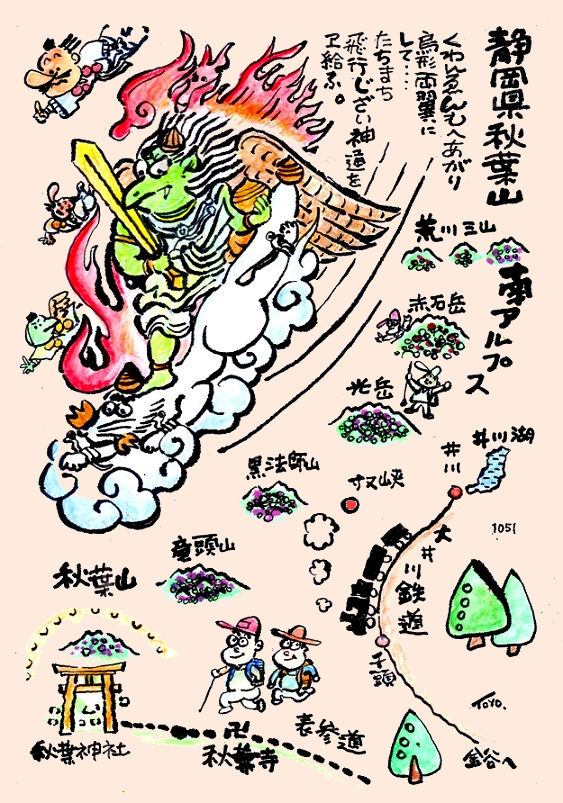 静岡県秋葉山
くわんゑんむへあがり
鳥形両翼に
して・・・・
たちまち
飛行じざい神通を
ヱ給ふ。
荒川三山
南アルプス
赤石岳
光岳
井川湖
井川
寸又峡
黒法師山
1051
大井川鉄道
竜頭山
秋葉山
千頭
TOYO.
表参道
卍
秋葉寺
秋葉神社
金谷へ